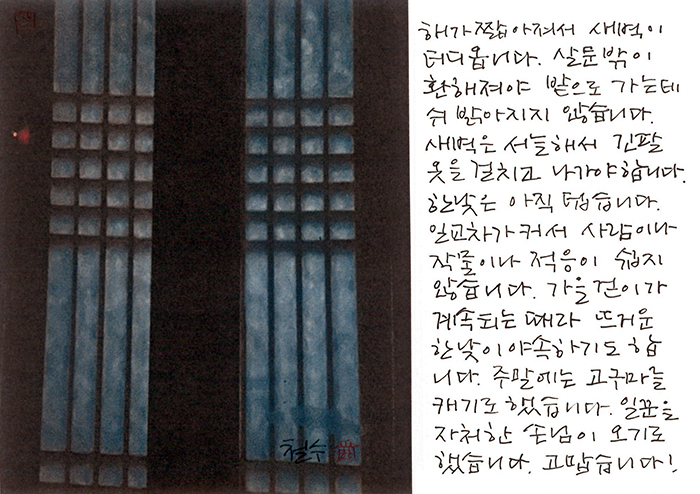 해가 짧아져서 새벽이
더디옵니다. 살문밖이
환해져야 밭으로 가는데
쉬 밝아지지 않습니다.
새벽은 서늘해서 긴팔
옷을 걸치고 나가야합니다.
한낮은 아직 덥습니다.
일교차가 커서 사람이나
작물이나 적응이 쉽지
않습니다. 가을걷이가
계속되는 때라 뜨거운
한낮이 야속하기도 합
니다. 주말에는 고구마를
캐기도 했습니다. 일꾼을
자처한 손님이 오기도
했습니다. 고맙습니다!
철수